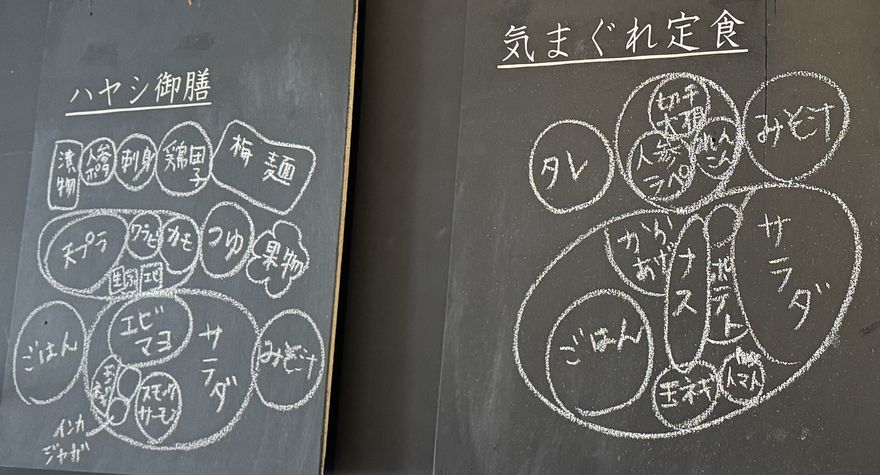 ハヤシ御膳
漬物
人参
ポタ
刺身
鶏団子
梅 麺
天プラ
ワラビ
カモ
つゆ
果物
生ふ
エビ
ごはん
エビ
マヨ
サラダ
みそ汁
玉ネギ
スモック
サーモン
インカ
ジャガ
気まぐれ定食
タレ
切干
大根
人参
ラペ
れん
こん
みそ汁
から
あげ
ナス
ポテト
サラダ
ごはん
玉ネギ
トマト